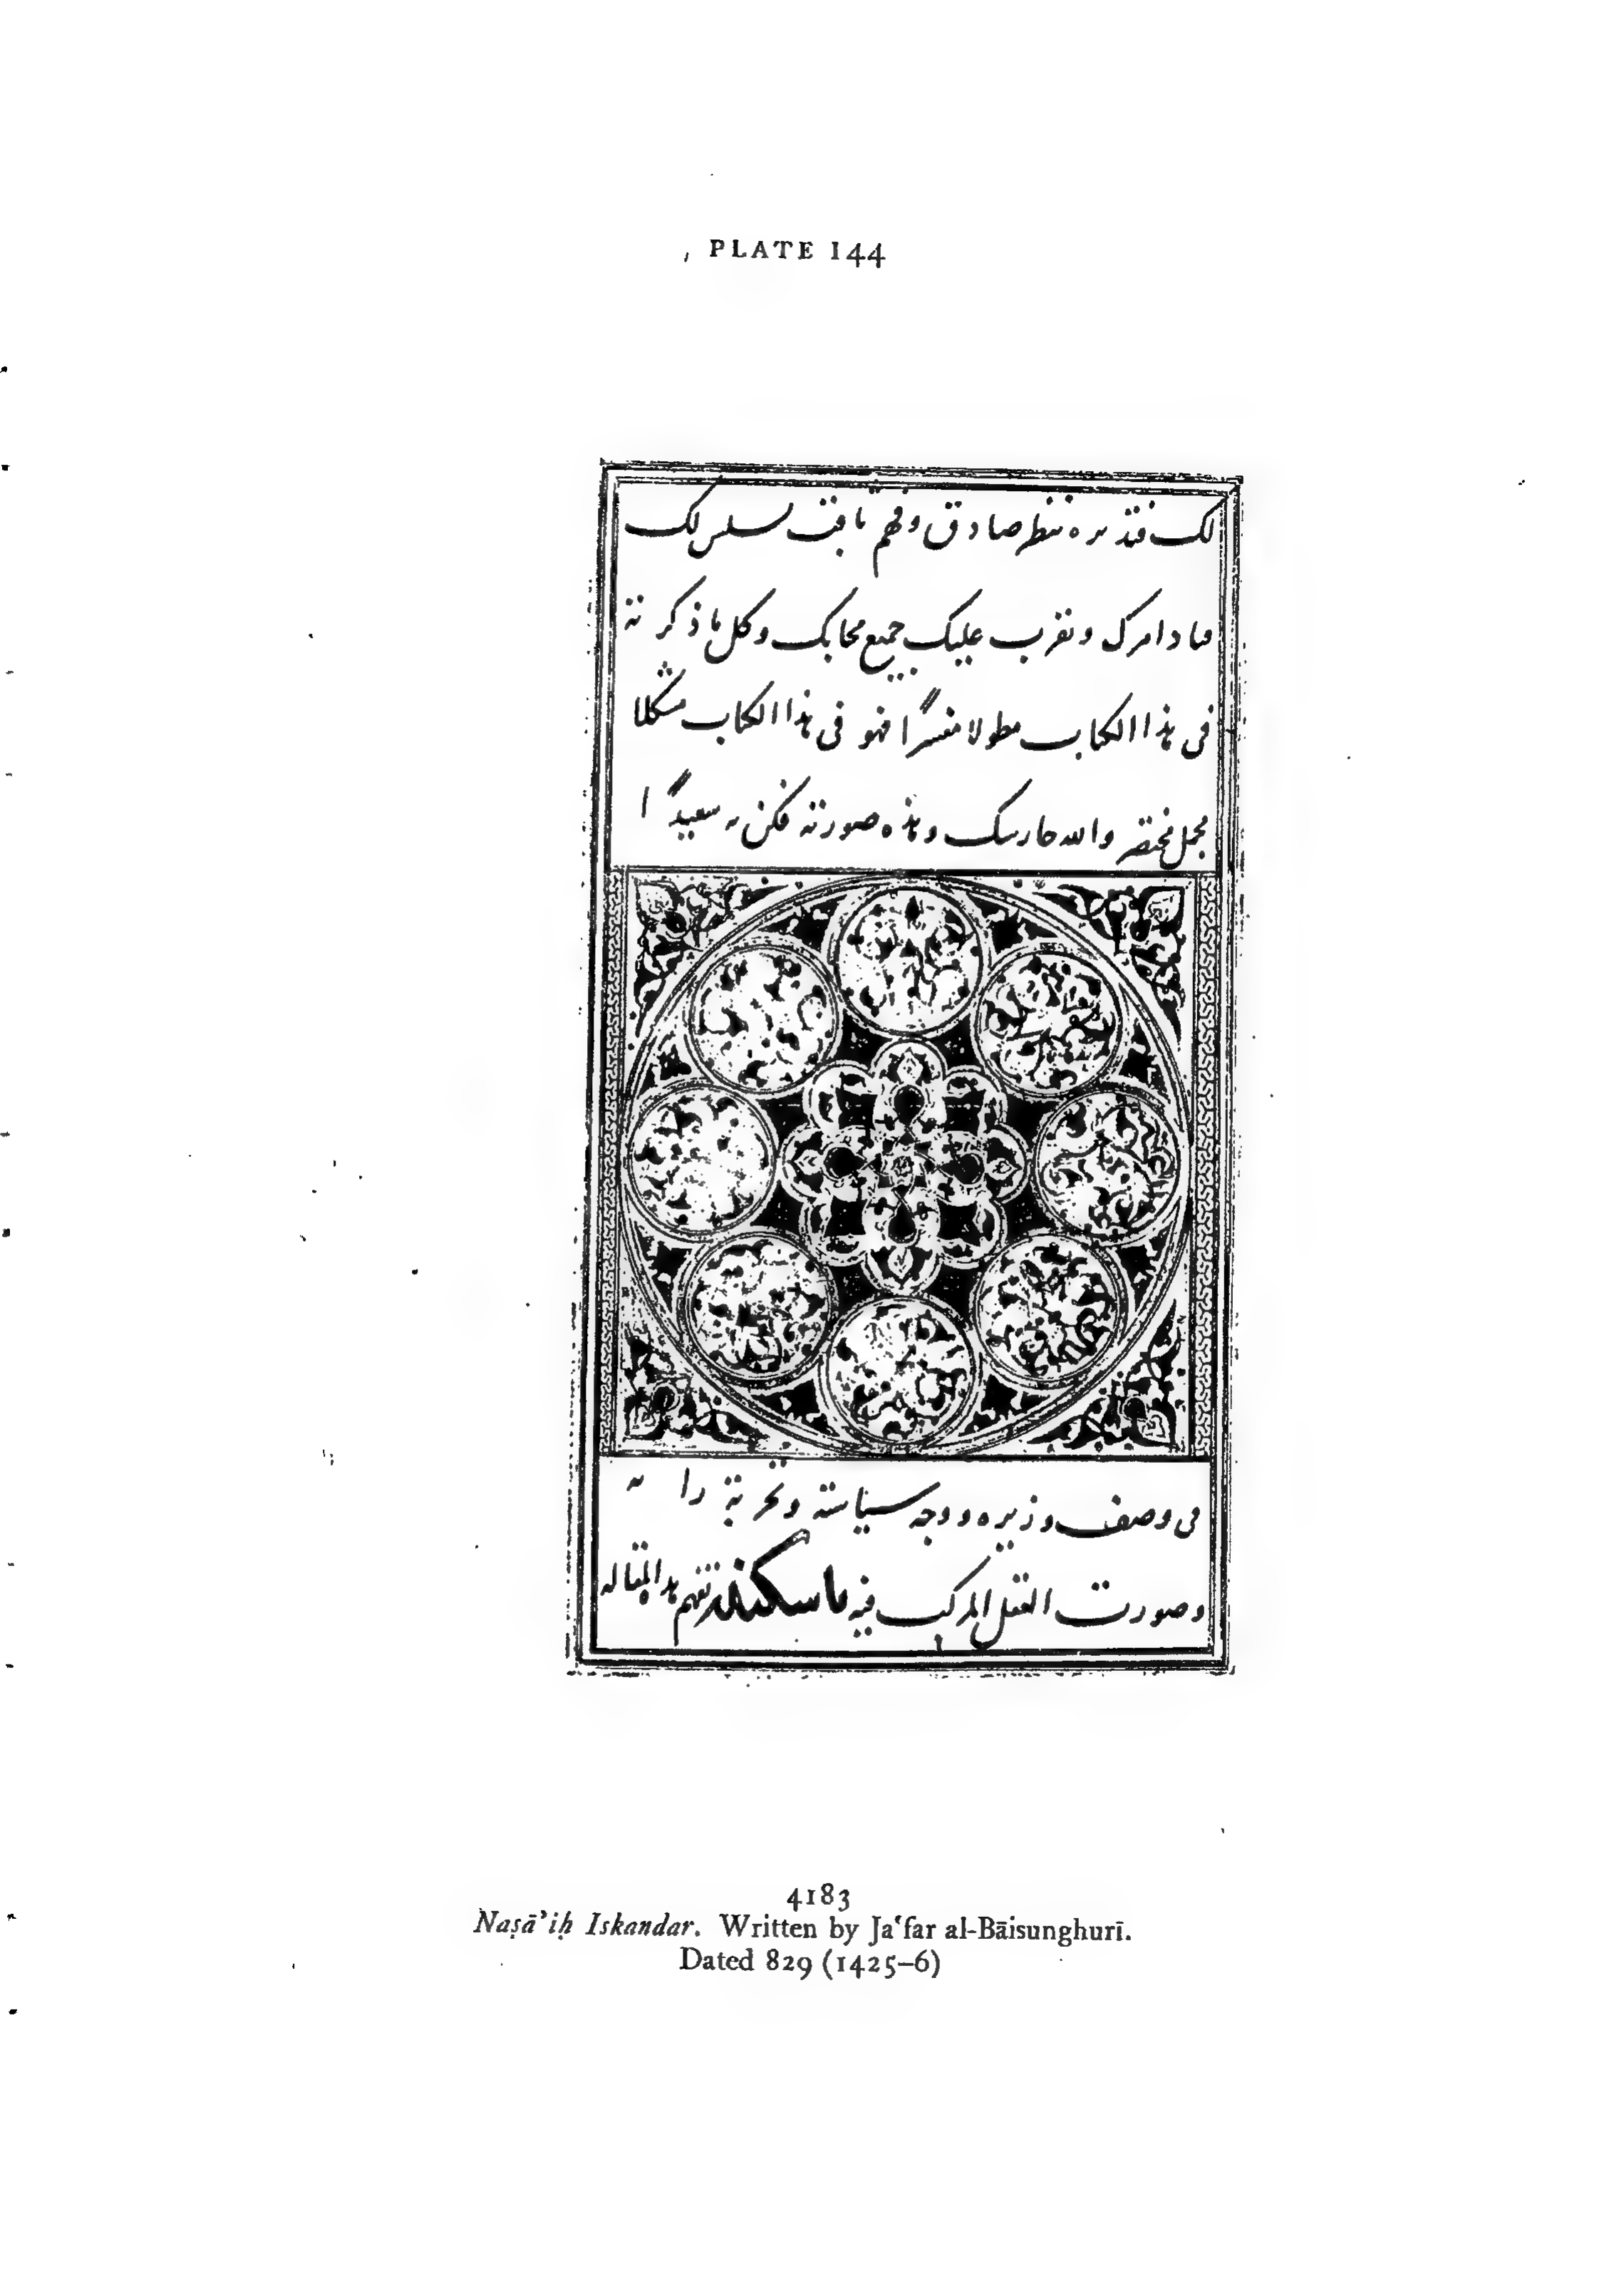 PLATE 144
لك فتدبره بنظر صادق وفهم ثاقب سلس لك
قياد امرك وتقرب عليك جميع محابك وكل ما ذكرته
فى هذا الكتاب مطولا مفسرًا فهو فى هذا الكتاب مشكلا
مجمل مختصر والله حارسك وهذه صورته فكن به سعيدًا
فى وصف وزيره ووجه سياسته وتجربة رأيه
وصورت العقل المركب فيه يا سكندر تفهم هذا المقاله
4183
Naṣā’iḥ Iskandar. Written by Ja‘far al-Bāisunghurī.
Dated 829 (1425–6)